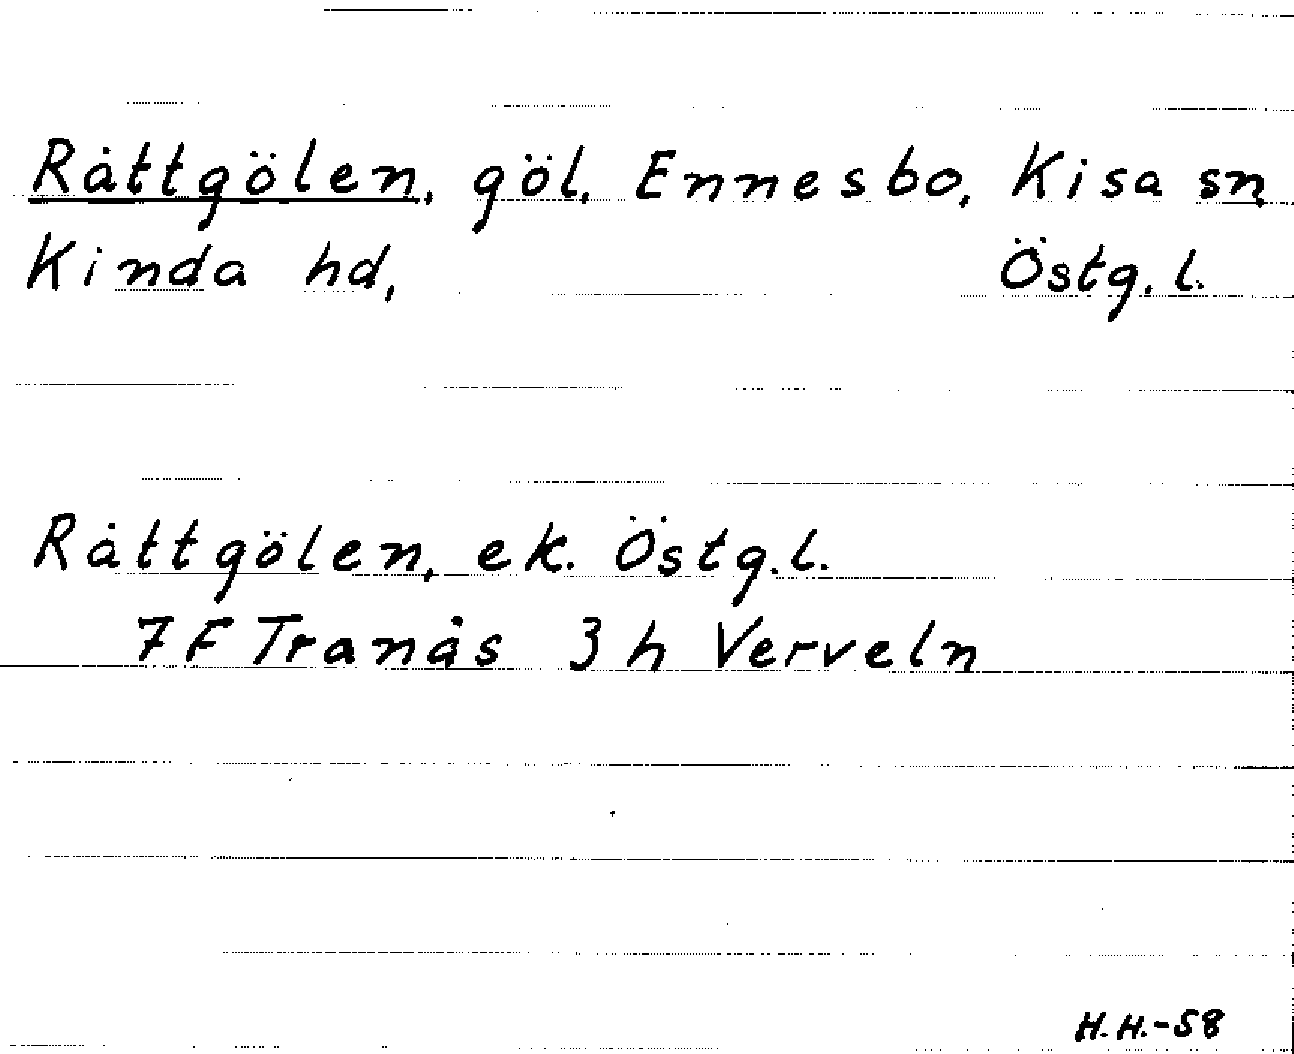 Råttgölen, göl, Ennesbo, Kisa sn
Kinda hd, Östg. l.
Råttgölen, ek. Östg. l.
7 F Tranås 3 h Verveln
H. H.-58